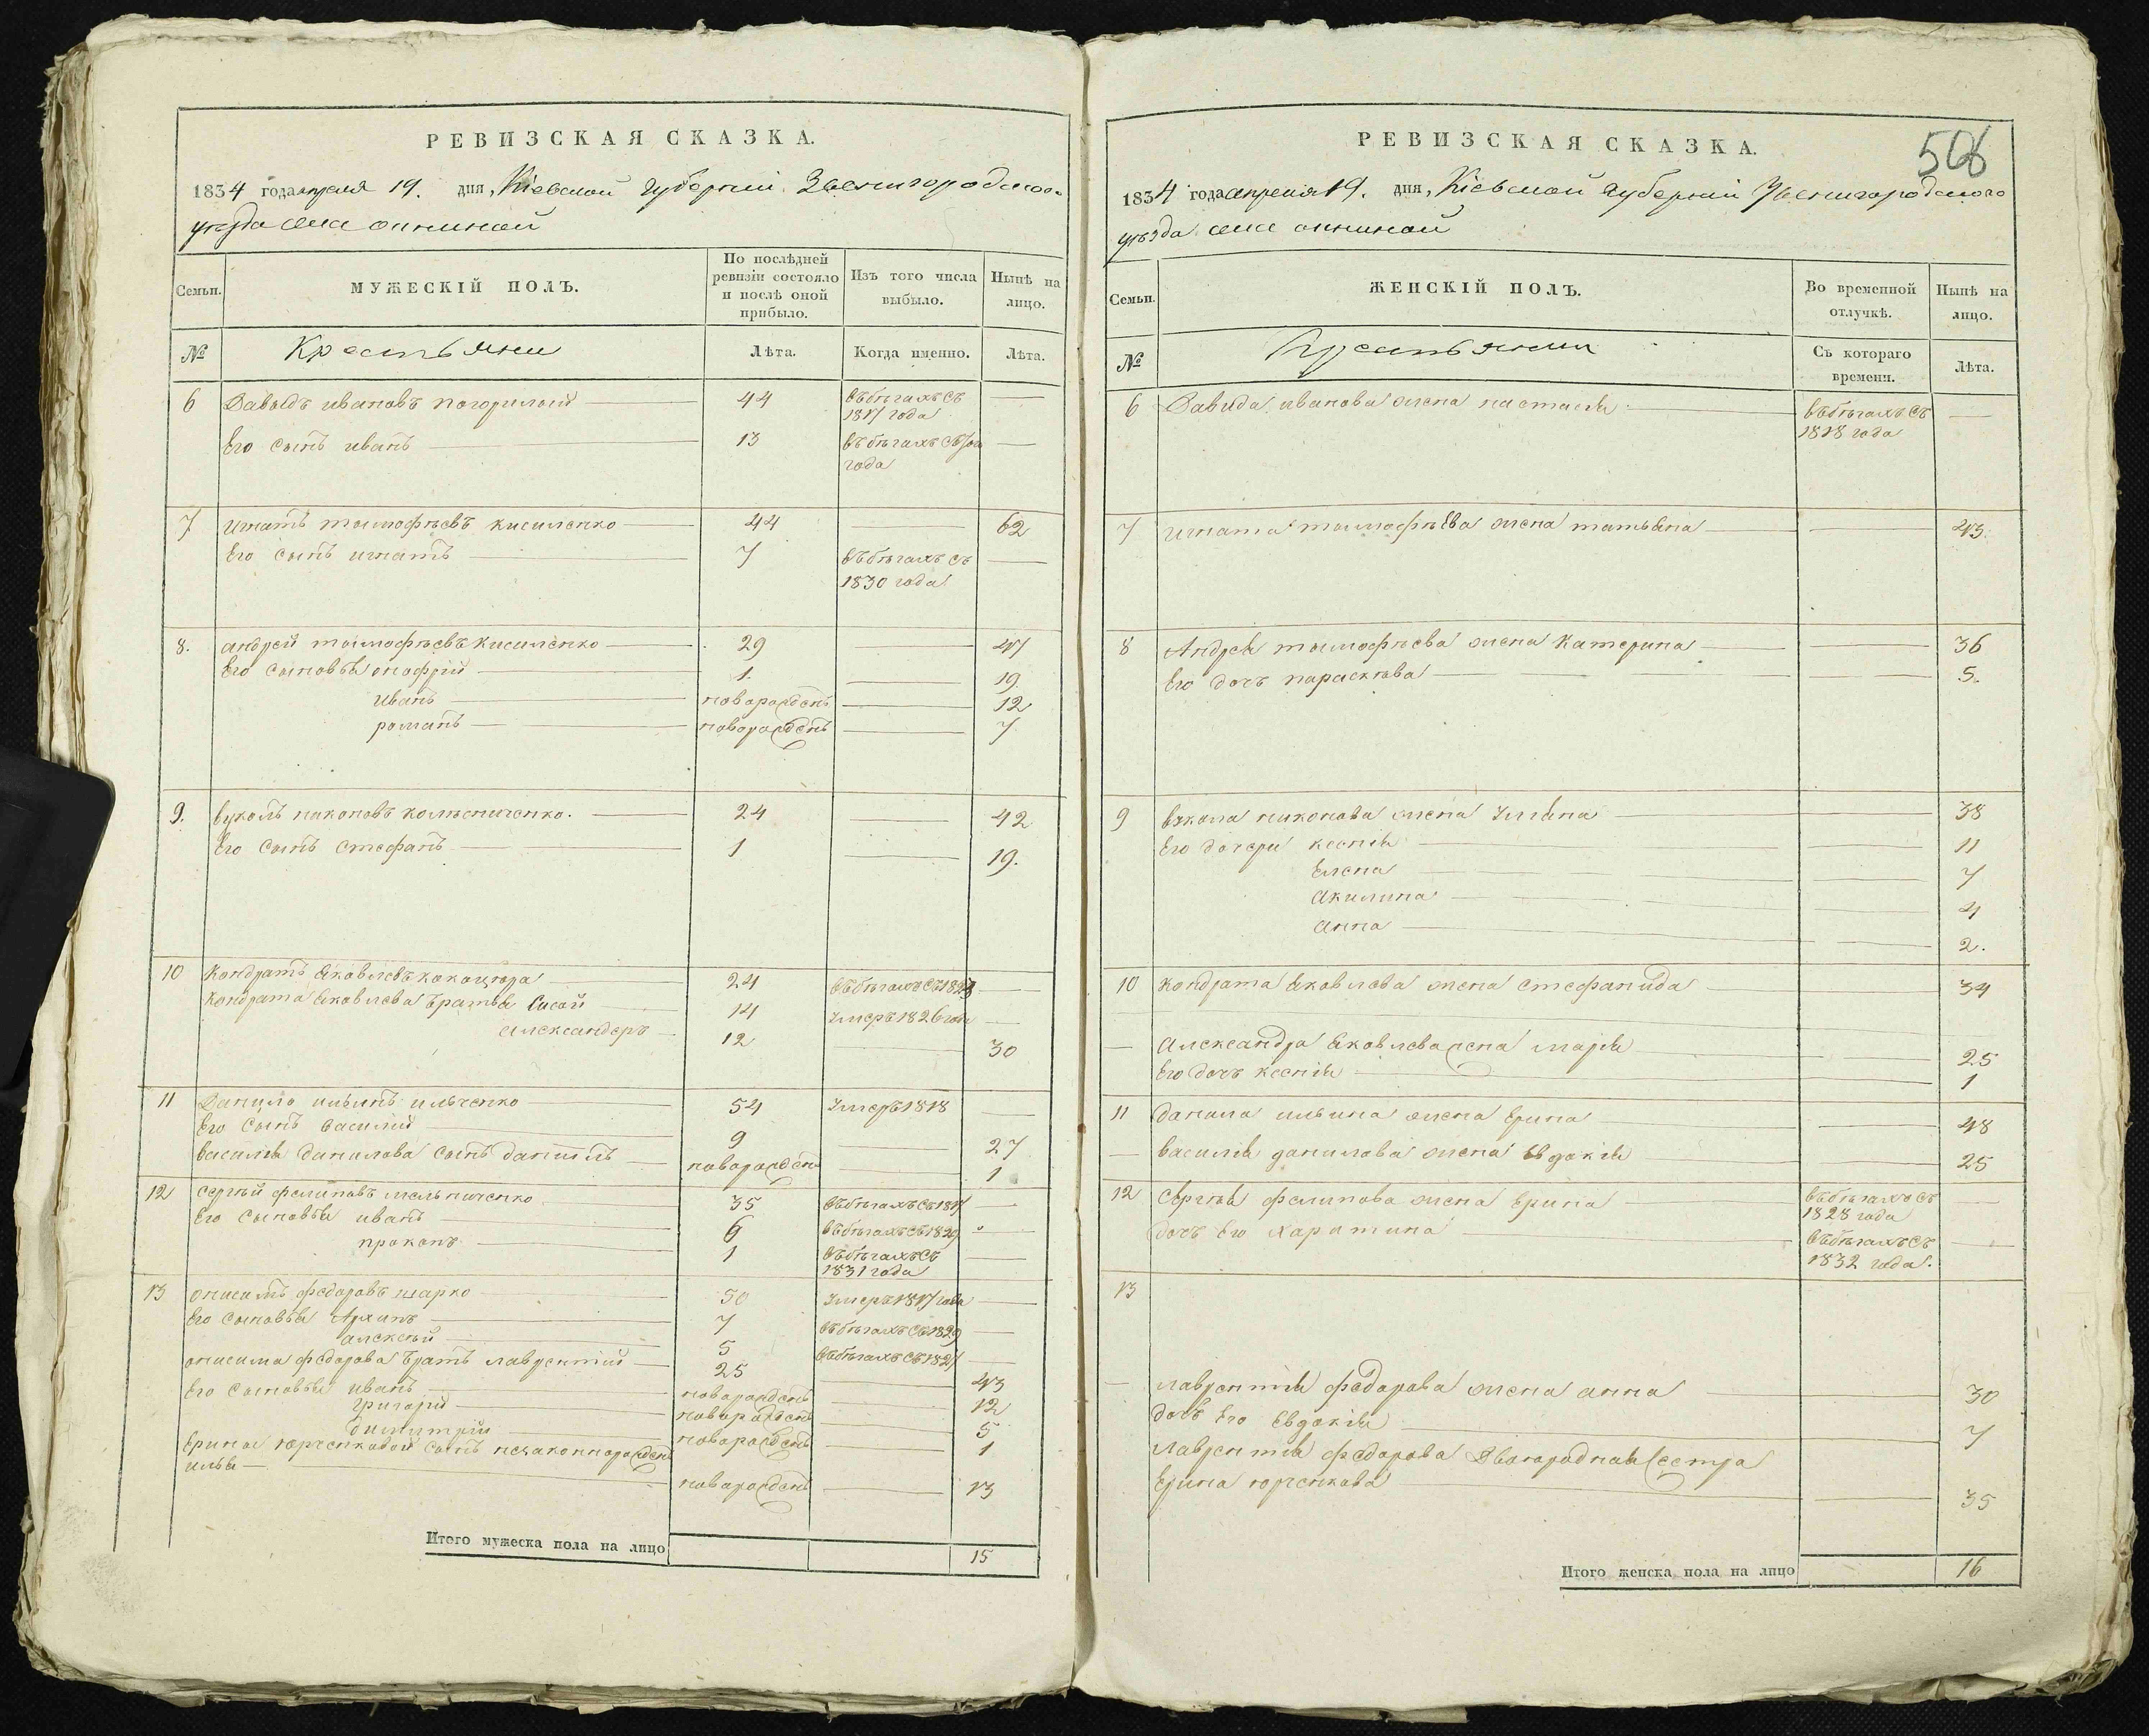 РЕВИЗСКАЯ СКАЗКА.
1834 года апреля 19. дня, Кіевской губерніи Звенигородского
уѣзда
Семьи.
МУЖЕСКІЙ ПОЛЪ.
По послѣдней ревизіи состояло и послѣ оной прибыло.
Изъ того числа выбыло.
Нынѣ на лицо.
№
Крестьяни
Лѣта.
Когда именно.
Лѣта.
6 Давыдъ ивановъ погорилый 44 въ бѣгахъ съ 1817 года
Его сынъ иванъ 13 въ бѣгахъ съ года
7 Игнатъ тымофѣевъ кисиленко 44 62
Его сынъ игнатъ 7 въ бѣгахъ съ 1830 года
8. андрей тымофѣевъ кисиленко 29 47
Его сыновья онофрій 1. 19
иванъ новорожденъ 12
романъ новорожденъ 7
9. вуколъ никоновъ 24 42
Его сынъ стефанъ 1 19.
10 Кондратъ яковлевъ кокоцюра 24 въ бѣгахъ съ
Кондрата яковлева братья сисой 14 умеръ 1826 года
александеръ 12 30
11 Данило ильинъ ильченко 54 умеръ 1818
Его сынъ василий 9 27
василия данилова сынъ даниилъ новорожденъ 1
12 сергѣй филиповъ мельниченко 35 въ бѣгахъ съ 1817
Его сыновья иванъ 6 въ бѣгахъ съ 1829
прокопъ 1 въ бѣгахъ съ 1831 года
13 онисимъ федоровъ шарко 50 умеръ 1817 года
Его сыновья Архипъ 7 въ бѣгахъ съ 1829
алексѣй 5 въ бѣгахъ съ 1827
онисима федорова братъ лаврентий 25 43
Его сыновья иванъ новорожденъ 12
григорий новорожденъ 5
димитрий новорожденъ 1
Ерины юрченковой сынъ незаконнорожден
илья новорожденъ 13
Итого мужеска пола на лицо 15
506
РЕВИЗСКАЯ СКАЗКА.
1834 года апреля 19. дня, Кіевской губерніи Звенигородского
уѣзда
Семьи.
ЖЕНСКІЙ ПОЛЪ.
Во временной отлучкѣ.
Нынѣ на лицо.
№
Крестьяни
Съ котораго времени.
Лѣта.
6 Давида иванова жена настасия въ бѣгахъ съ 1818 года
7 Игната тымофѣева жена татьяна 43
8 Андрея тымофѣева жена Катерина 36
Его дочъ параскѣва 5.
9 вукола никонова жена Улияна 38
Его дочери ксения 11
Елена 7
Акилина 4
Анна 2.
10 Кондрата яковлева жена стефанида 34
Александра яковлева жена мария 25
Его дочъ ксения 1
11 данила ильина жена Ерина 48
василия данилова жена Евдокия 25
12 Сергѣя филипова жена Ерина въ бѣгахъ съ 1828 года
дочъ Его харитина въ бѣгахъ съ 1832 года.
13
лаврентия федорова жена анна 30
дочъ Его Евдокия 7
лаврентия федорова двоюродная сестра
Ерина юрченкова 35
Итого женска пола на лицо 16